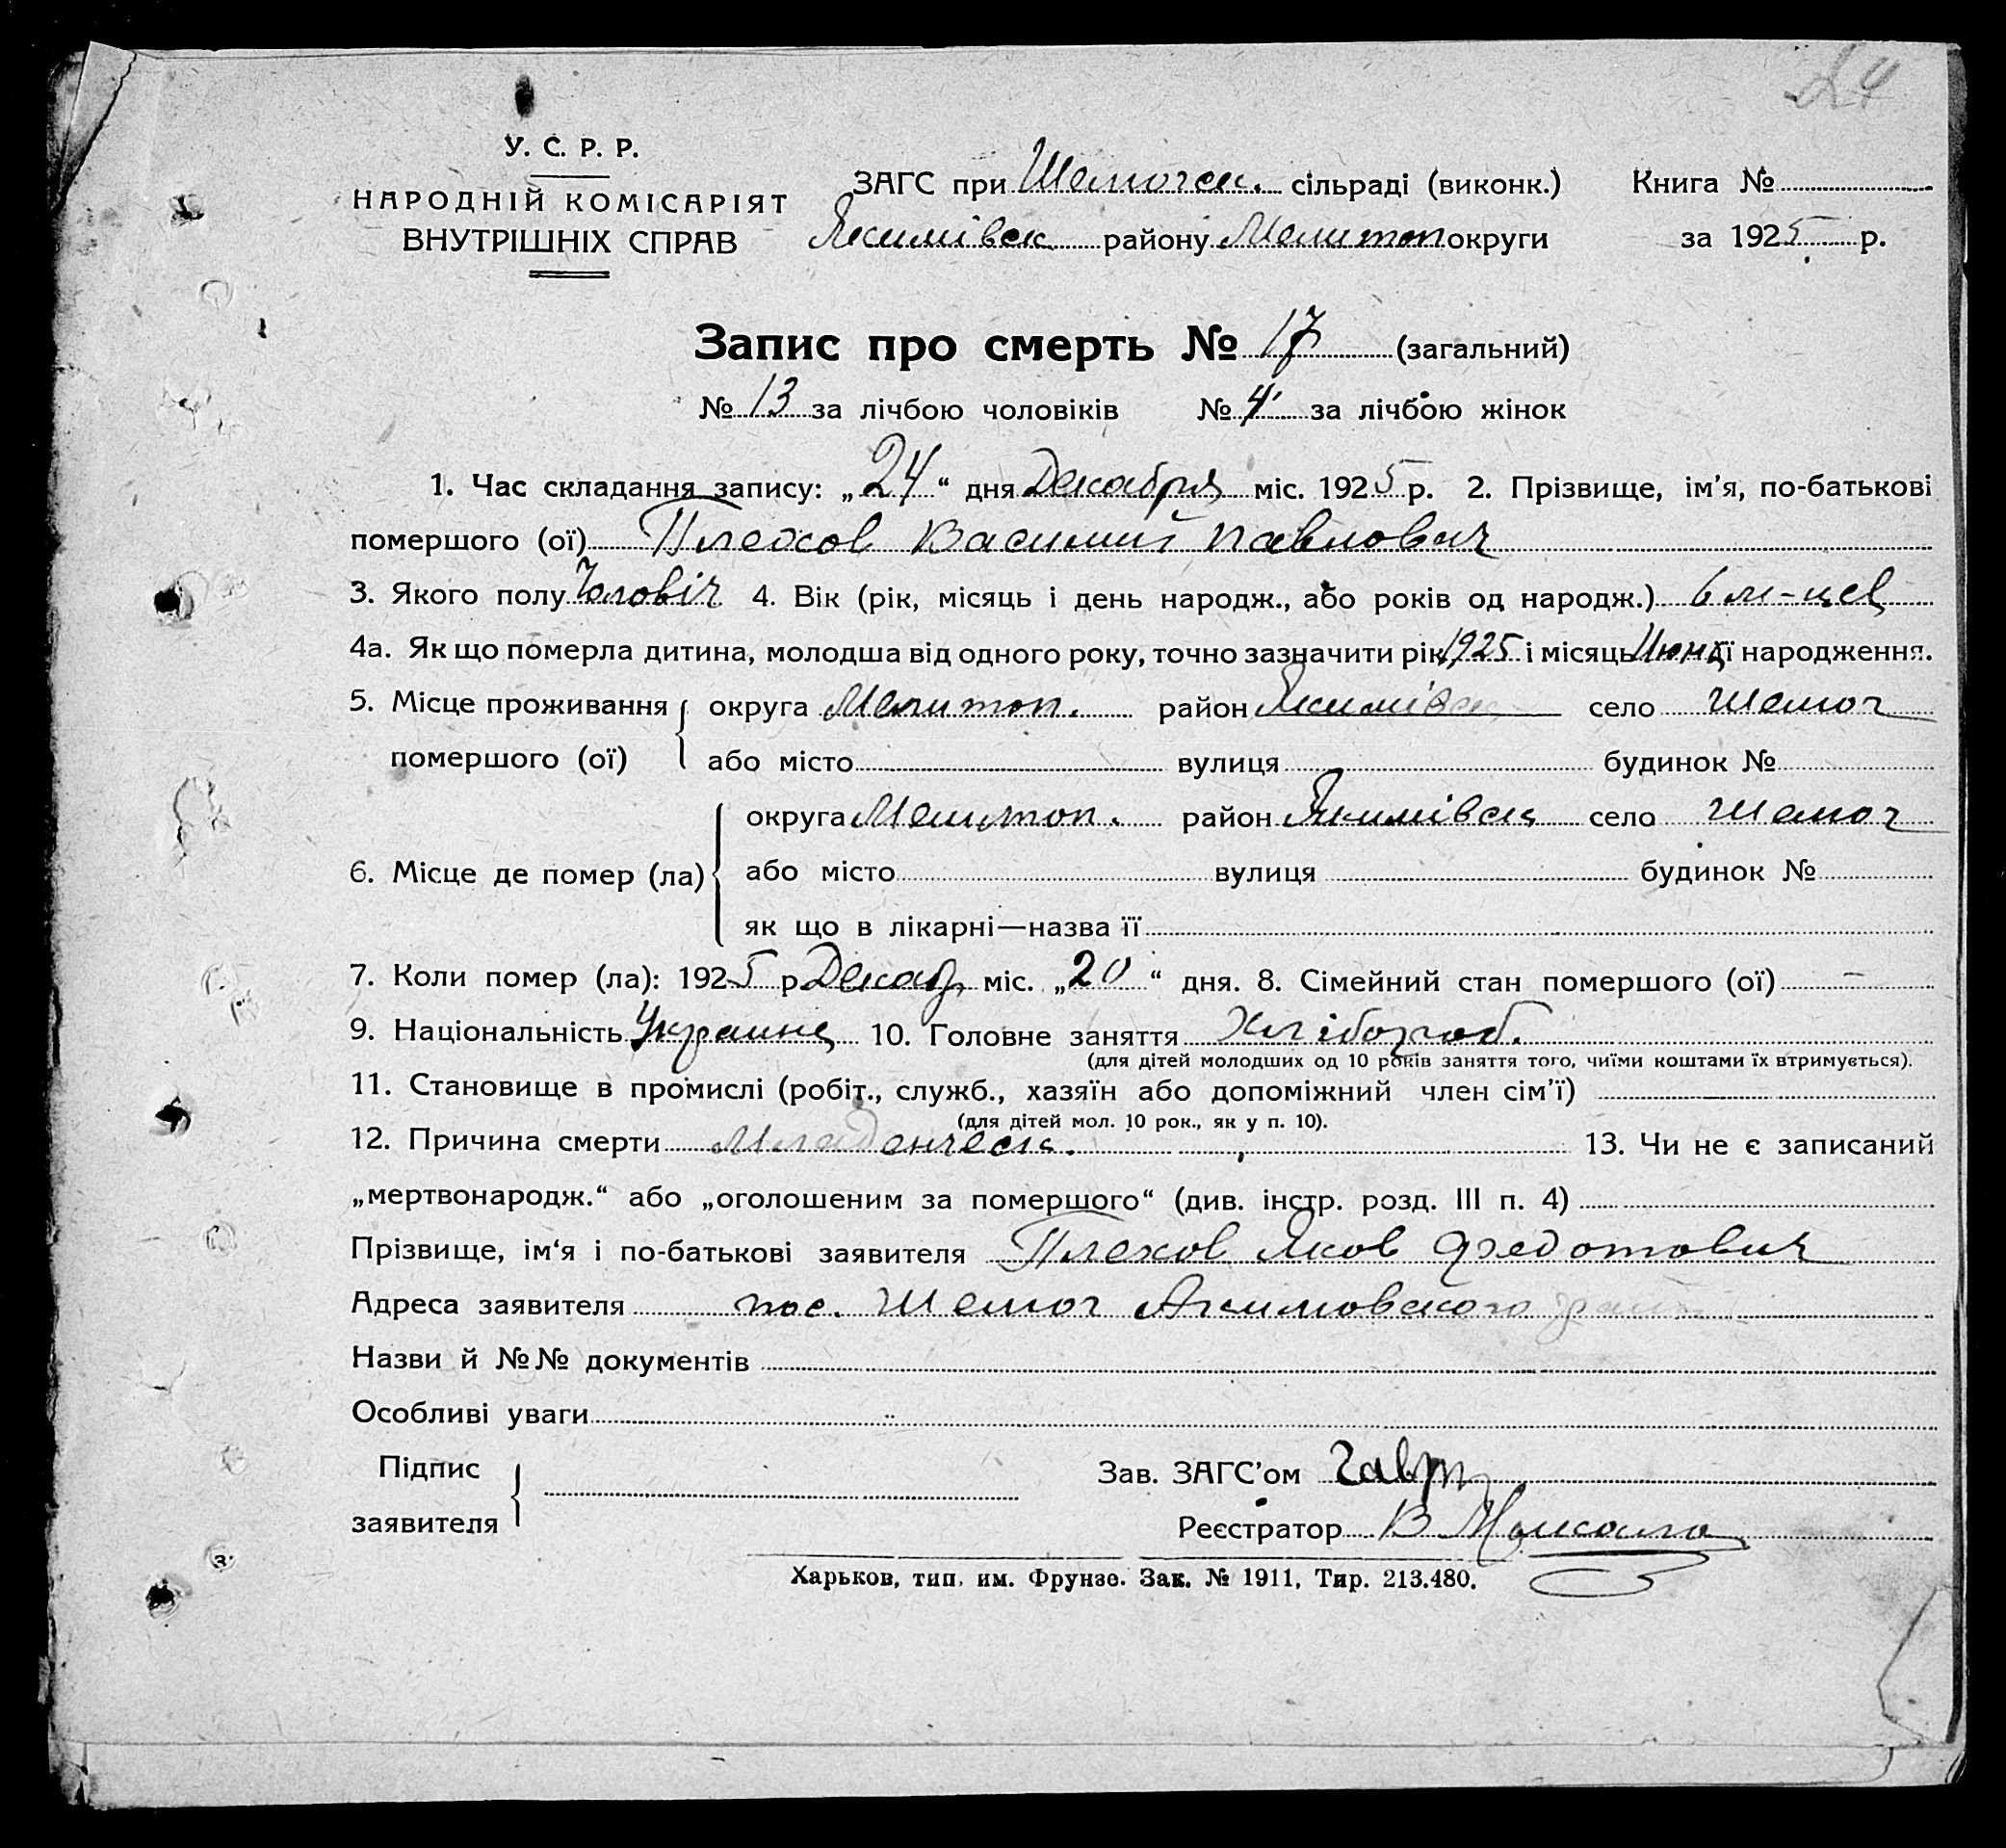 24
У. С. Р. Р.
НАРОДНІЙ КОМІСАРІЯТ
ВНУТРІШНІХ СПРАВ
ЗАГС при Шемогск. сільраді (виконк.) Книга №
Якимівск району Мелитоп округи за 1925 р.
Запис про смерть № 17 (загальний)
№ 13 за лічбою чоловіків № 4 за лічбою жінок
1. Час складання запису: „24“ дня Декабря міс. 1925 р. 2. Прізвище, ім’я, по-батькові
помершого (ої) Плехов Василий Павлович
3. Якого полу Чоловіч 4. Вік (рік, місяць і день народж., або років од народж.) 6 м-цев
4а. Як що померла дитина, молодша від одного року, точно зазначити рік 1925 і місяць Июня її народження.
5. Місце проживання округа Мелитоп. район Якимівск село Шемог
помершого (ої) або місто вулиця будинок №
округа Мелитоп. район Якимівск село Шемог
6. Місце де помер (ла) або місто вулиця будинок №
як що в лікарні—назва її
7. Коли помер (ла): 1925 р. Декабр міс. „20“ дня. 8. Сімейний стан помершого (ої) –
9. Національність Украинец 10. Головне заняття Хлібороб.
(для дітей молодших од 10 років заняття того, чиїми коштами їх втримується).
11. Становище в промислі (робіт., служб., хазяїн або допоміжний член сім’ї)
(для дітей мол. 10 рок., як у п. 10).
12. Причина смерти Младенческ. 13. Чи не є записаний
„мертвонародж.“ або „оголошеним за помершого“ (див. інстр. розд. III п. 4)
Прізвище, ім‘я і по-батькові заявителя Плехов Яков Федотович
Адреса заявителя пос. Шемог Акимовского
Назви й №№ документів
Особливі уваги
Підпис Зав. ЗАГС’ом
заявителя Реєстратор В
Харьков, тип. им. Фрунзе. Зак. № 1911, Тир. 213.480.